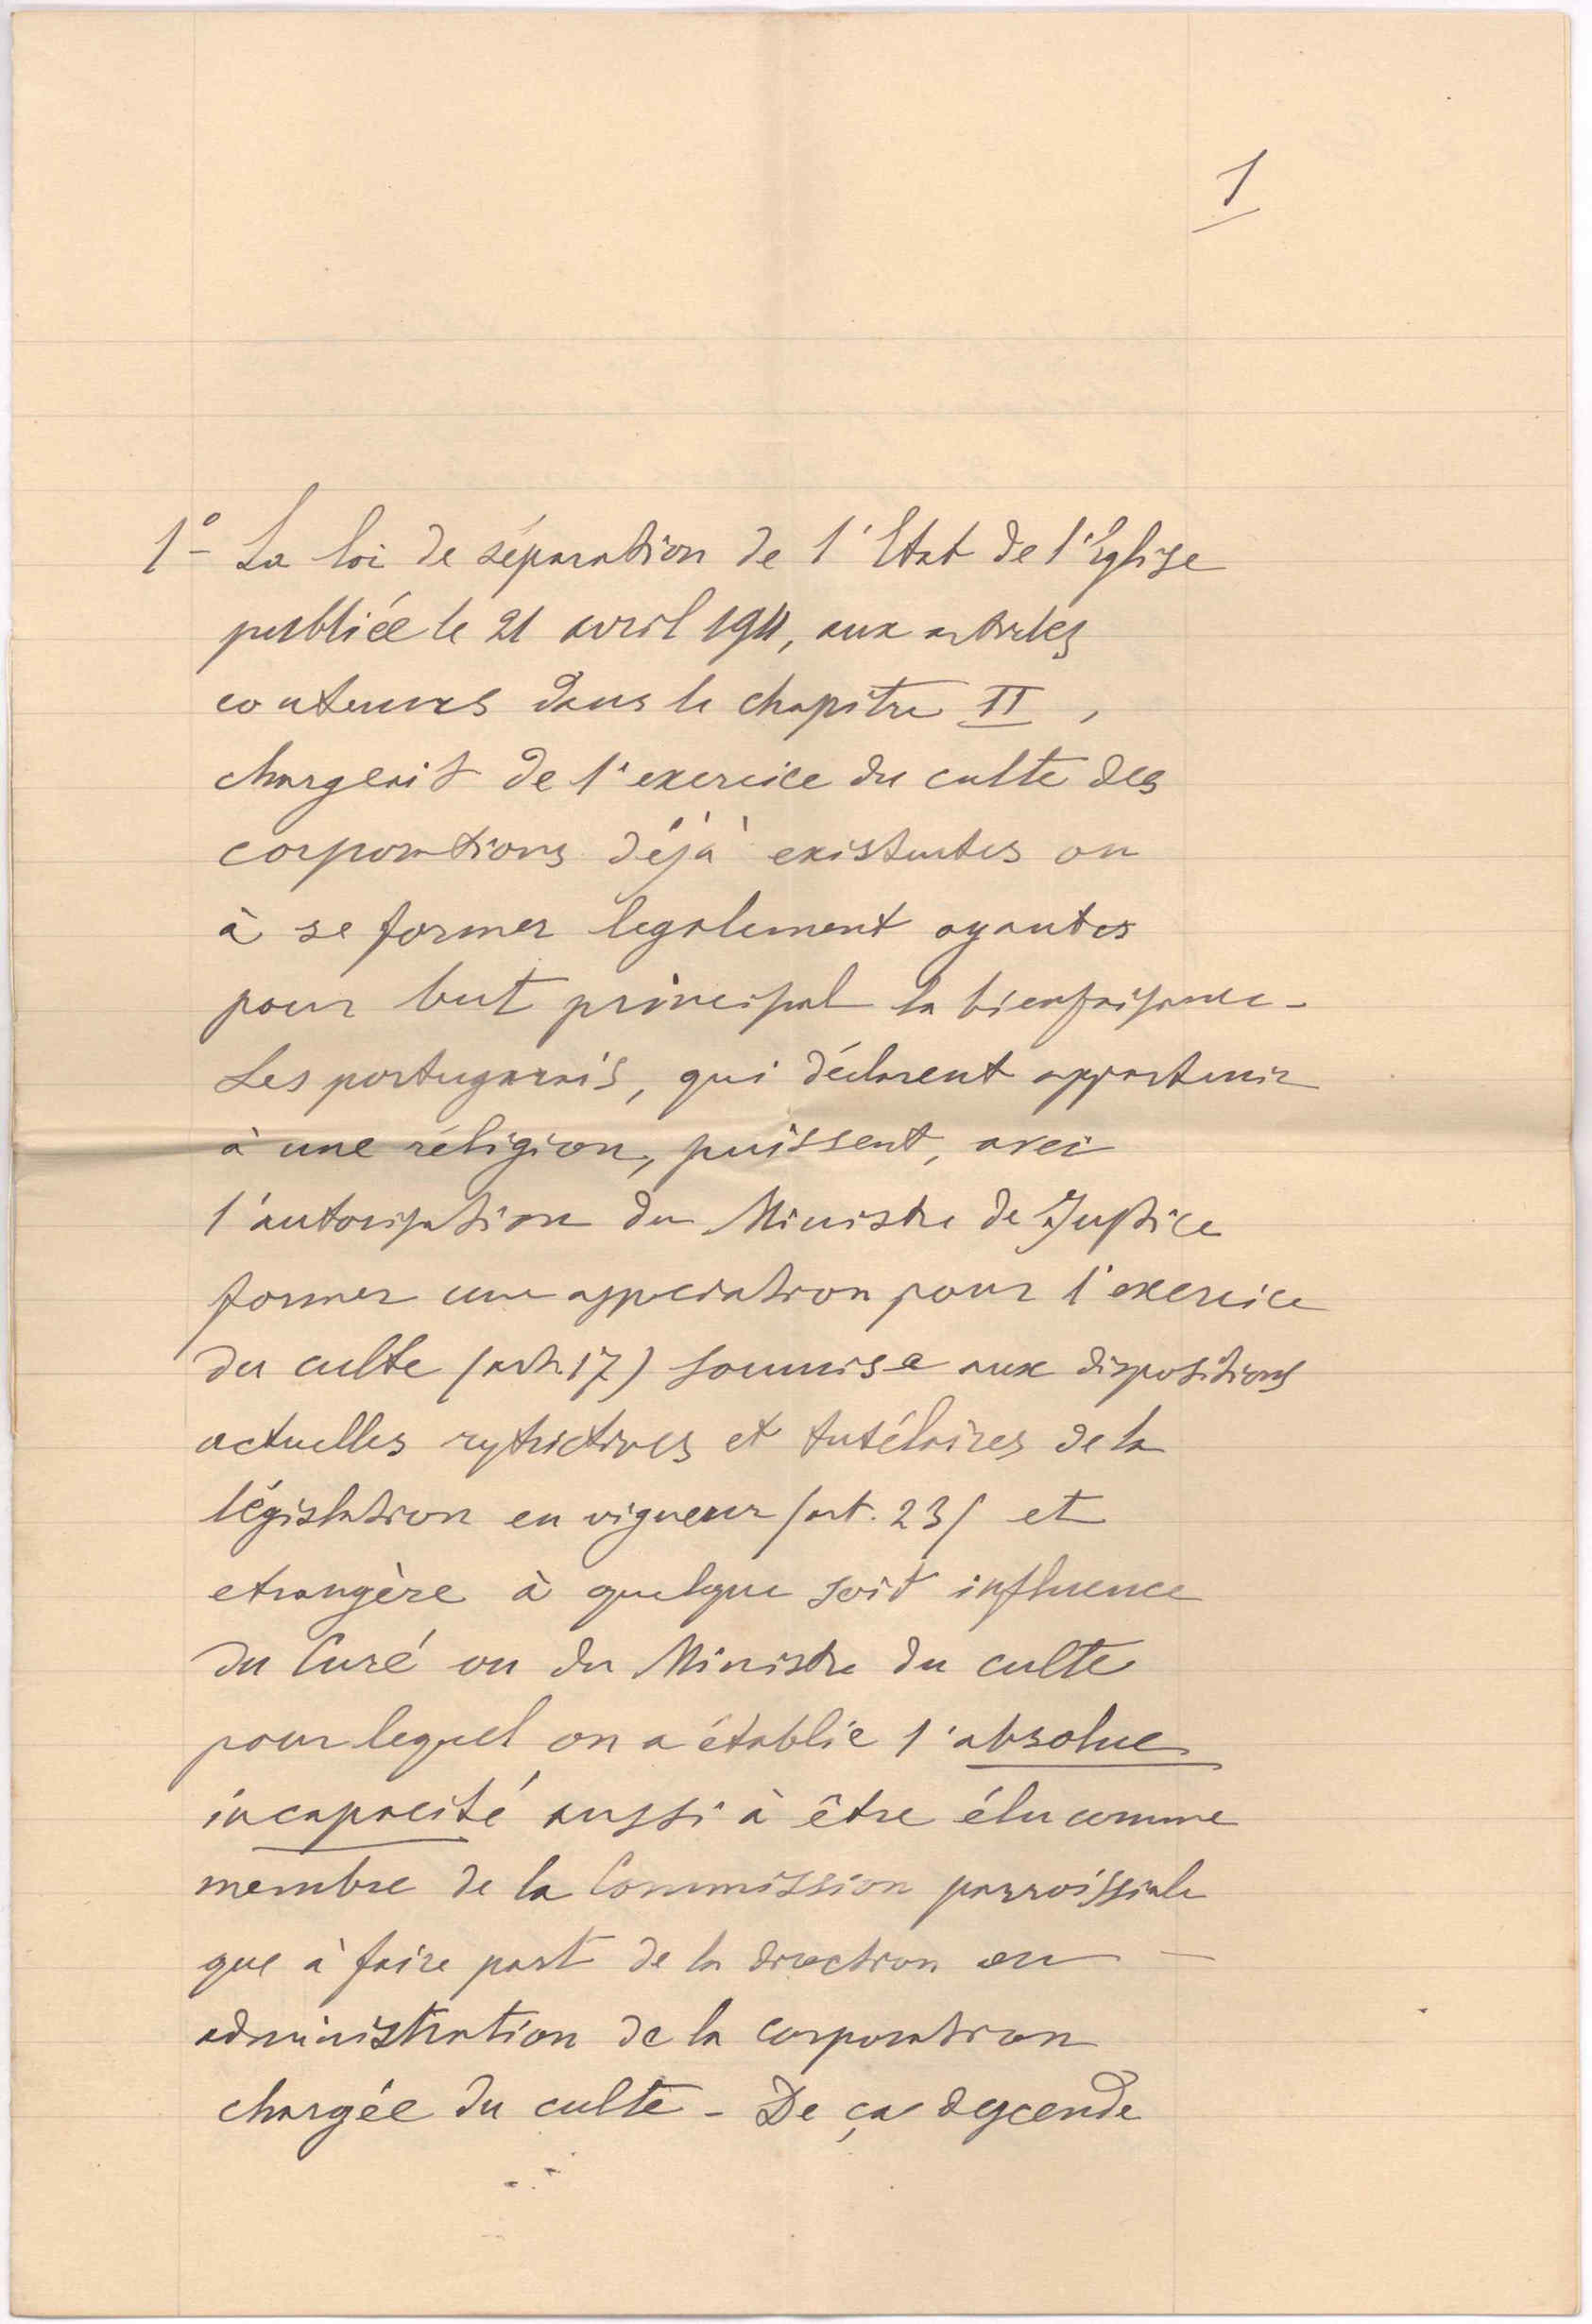 1
1º- La loi de séparation de l'Etat de l'Eglise
publiée le 21 avril 1911, aux articles
contenues dans le chapitre II,
chargeait de l'exercice du culte des
corporations déjà existentes ou
à se former legalement ayantes
pour but principal la bienfaisance-
Les portugarais, qui déclarent appartenir
à une réligion, puissent, avec
l'autorisation du Ministre de Justice
former une association pour l'exercice
du culte (art. 17) soumise aux dispositions
actuelles restrictives et tutélaires de la
législation en vigueur (art. 23) et
etrangère à quelque soit influence
du Curé ou du Ministre du culte
pour lequel on a établie l'absolue
incapacité aussi à être élu comme
membre de la Commission parroissiale
que à faire part de la direction ou -
administration de la corporation
chargée du culte - De ça descende